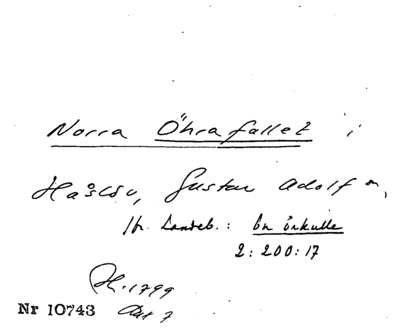 Norra Öhrafallet i
Håslöv, Gustav Adolf sn,
Jfr. Landeb.: Ön önkulle
2:200:17
H. 1799
Nr 10743 Akt 7